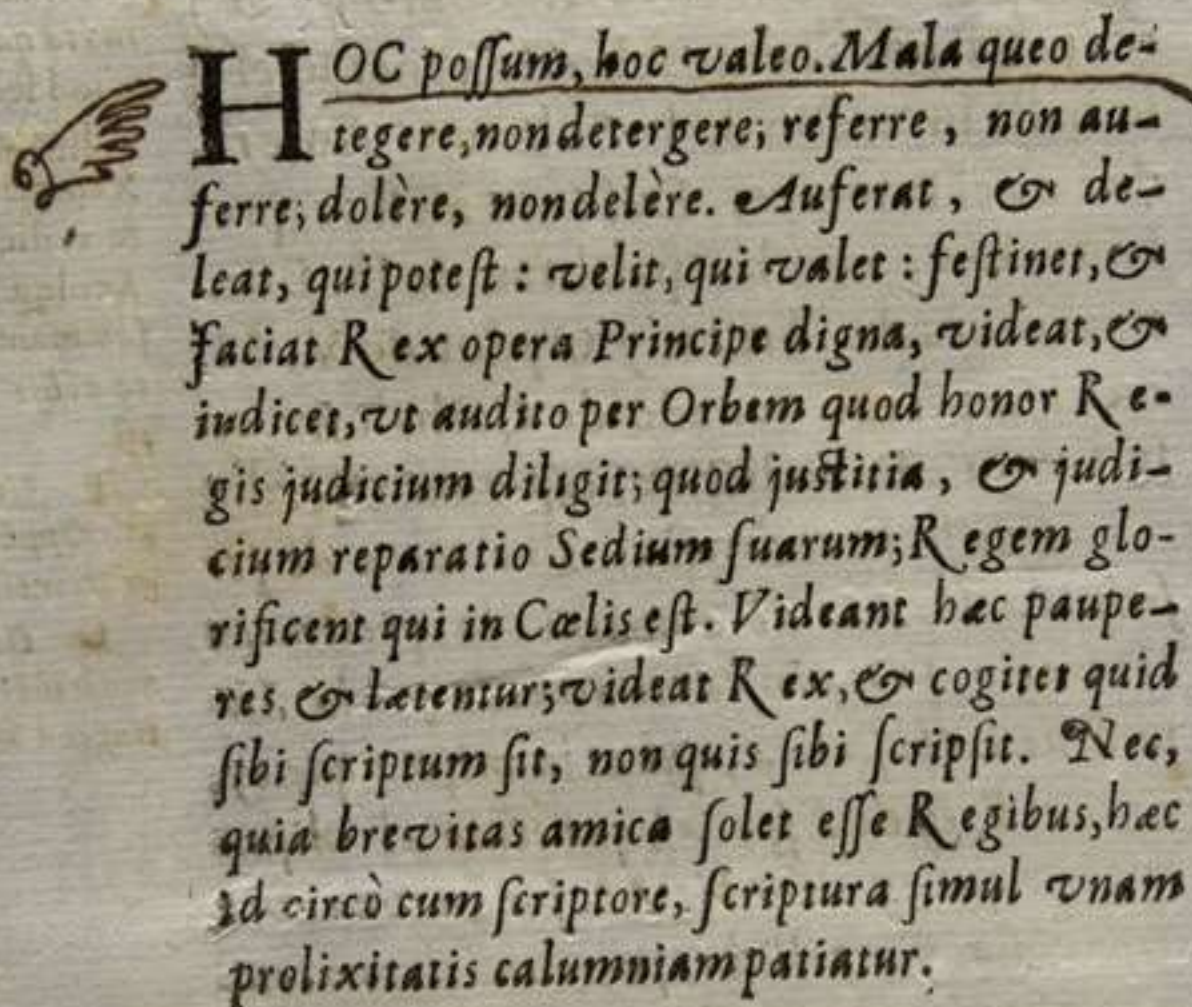 HOC poſſum, hoc valeo. Mala queo de-
tegere, non detergere; referre, non au-
ferre; dolère, non delère. Auferat, & de-
leat, qui poteſt : velit, qui valet : feſtinet, &
faciat Rex opera Principe digna, videat, &
iudicet, vt audito per Orbem quod honor Re-
gis judicium diligit; quod juſtitia, & judi-
cium reparatio Sedium ſuarum; Regem glo-
rificent qui in Cœlis eſt. Videant hæc paupe-
res & lætentur; videat Rex, & cogitet quid
ſibi ſcriptum ſit, non quis ſibi ſcripſit. Nec,
quia brevitas amica ſolet eſſe Regibus, hæc
id circò cum ſcriptore, ſcriptura ſimul vnam
prolixitatis calumniam patiatur.